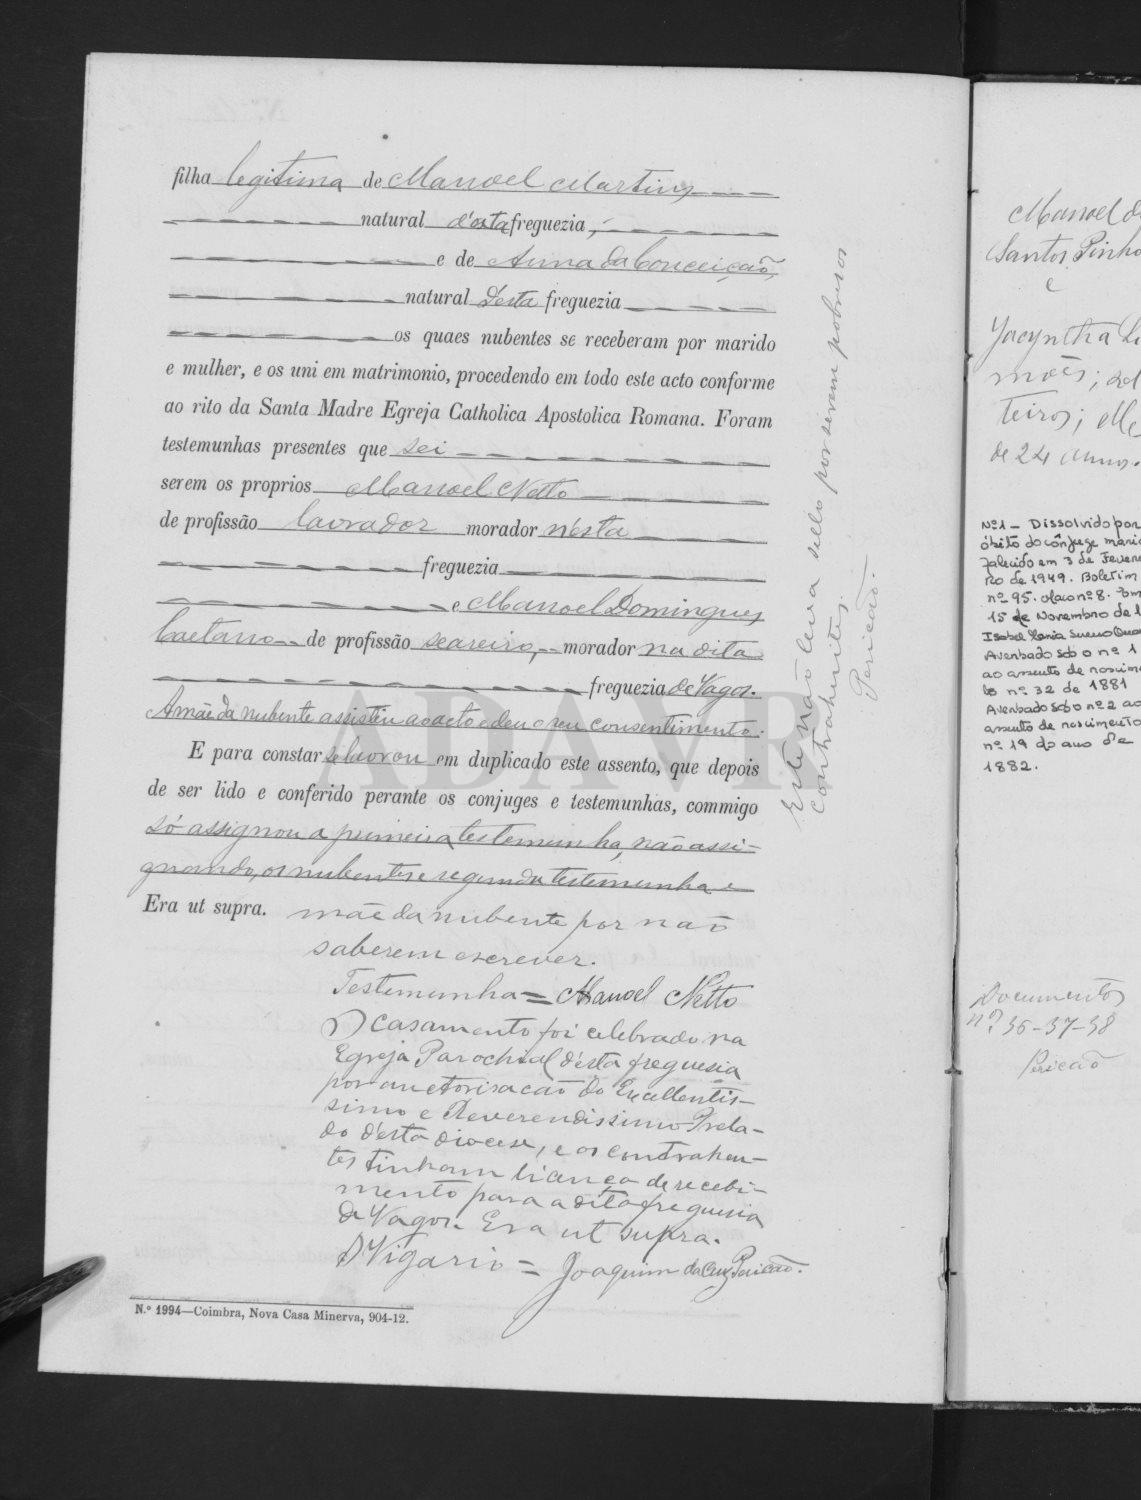 filha legitima de Manoel Martins
natural d'esta freguezia,
e de Anna da Conceição,
natural d'esta freguezia
os quaes nubentes se receberam por marido
e mulher, e os uni em matrimonio, procedendo em todo este acto conforme
ao rito da Santa Madre Egreja Catholica Apostolica Romana. Foram
testemunhas presentes que sei
serem os proprios Manoel Netto
de profissão lavrador morador n'esta
freguezia
e Manoel Domingues
Caetano de profissão seareiro, morador na dita
freguezia de Vagos.
A mãe da nubente assistiu ao acto e deu o seu consentimento.
E para constar se lavrou em duplicado este assento, que depois
de ser lido e conferido perante os conjuges e testemunhas, commigo
só assignou a primeira testemunha, não assi-
gnando, os nubentes e segunda testemunha e
Era ut supra. mãe da nubente por não
saberem escrever.
Testemunha = Manoel Netto
O casamento foi celebrado na
Egreja Parochial d'esta freguesia
por auctorisacão do Excellentis-
simo e Reverendissimo Prela-
do d'esta diocese, e os contrahen-
tes tinham licença de recebi-
mento para a dita freguesia
de Vagos. Era ut supra.
O Vigario = Joaquim da Cruz Pericão.
N.º 1994—Coimbra, Nova Casa Minerva, 904-12.
Este não leva sello por serem pobres os
contrahentes.
Pericão.
ADAVR
Manoel d
Santos Pinho
e
Jacyntha Si
mões; sol
teiros; Me
de 24 annos.
Nº1 - Dissolvido por
óbito do cônjuge mari
falecido em 3 de Feverei
ro de 1949. Boletim
nº 95. Maço nº 8. Em
15 de Novembro de 1
Isabel Maria
Averbado sob o nº 1
ao assento de nascime
to nº 32 de 1881
Averbado sob o nº 2 ao
assento de nascimento
nº 19 do ano de
1882.
Documentos
nº 36-37-38
Pericão